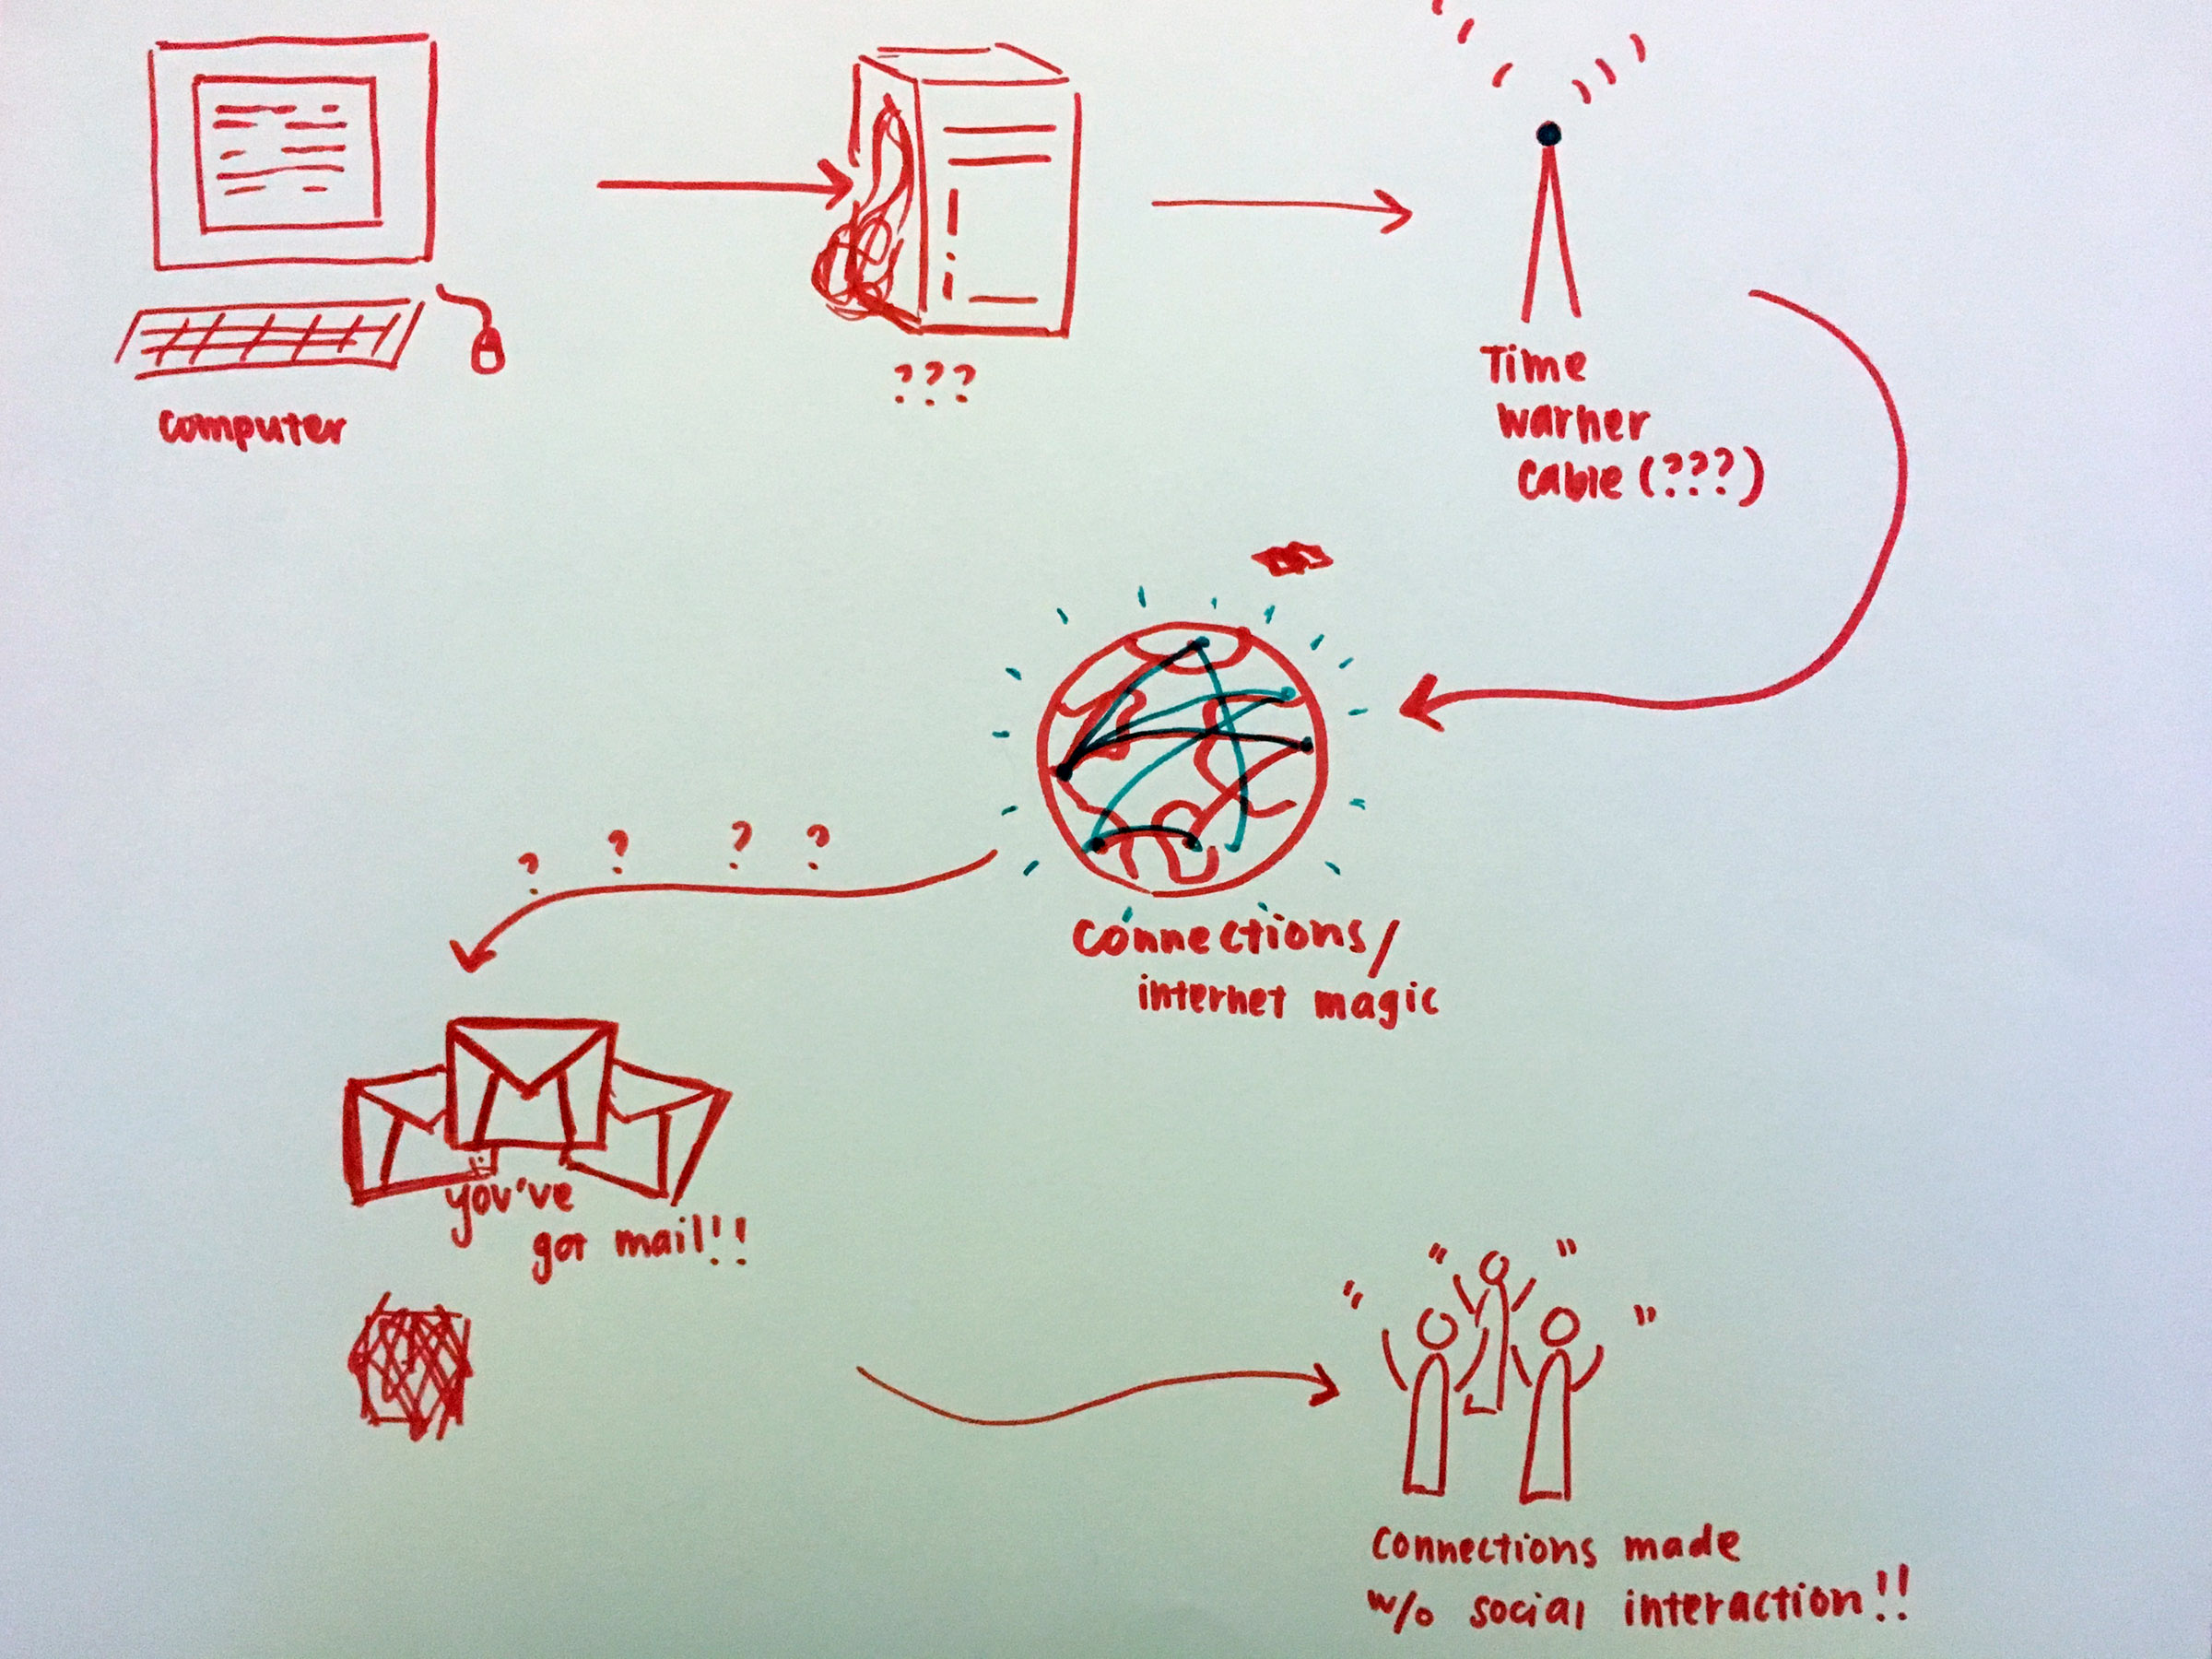 computer
???
Time
Warner
Cable (???)
connections/
internet magic
? ? ? ?
you've
got mail!!
connections made
w/o social interaction!!